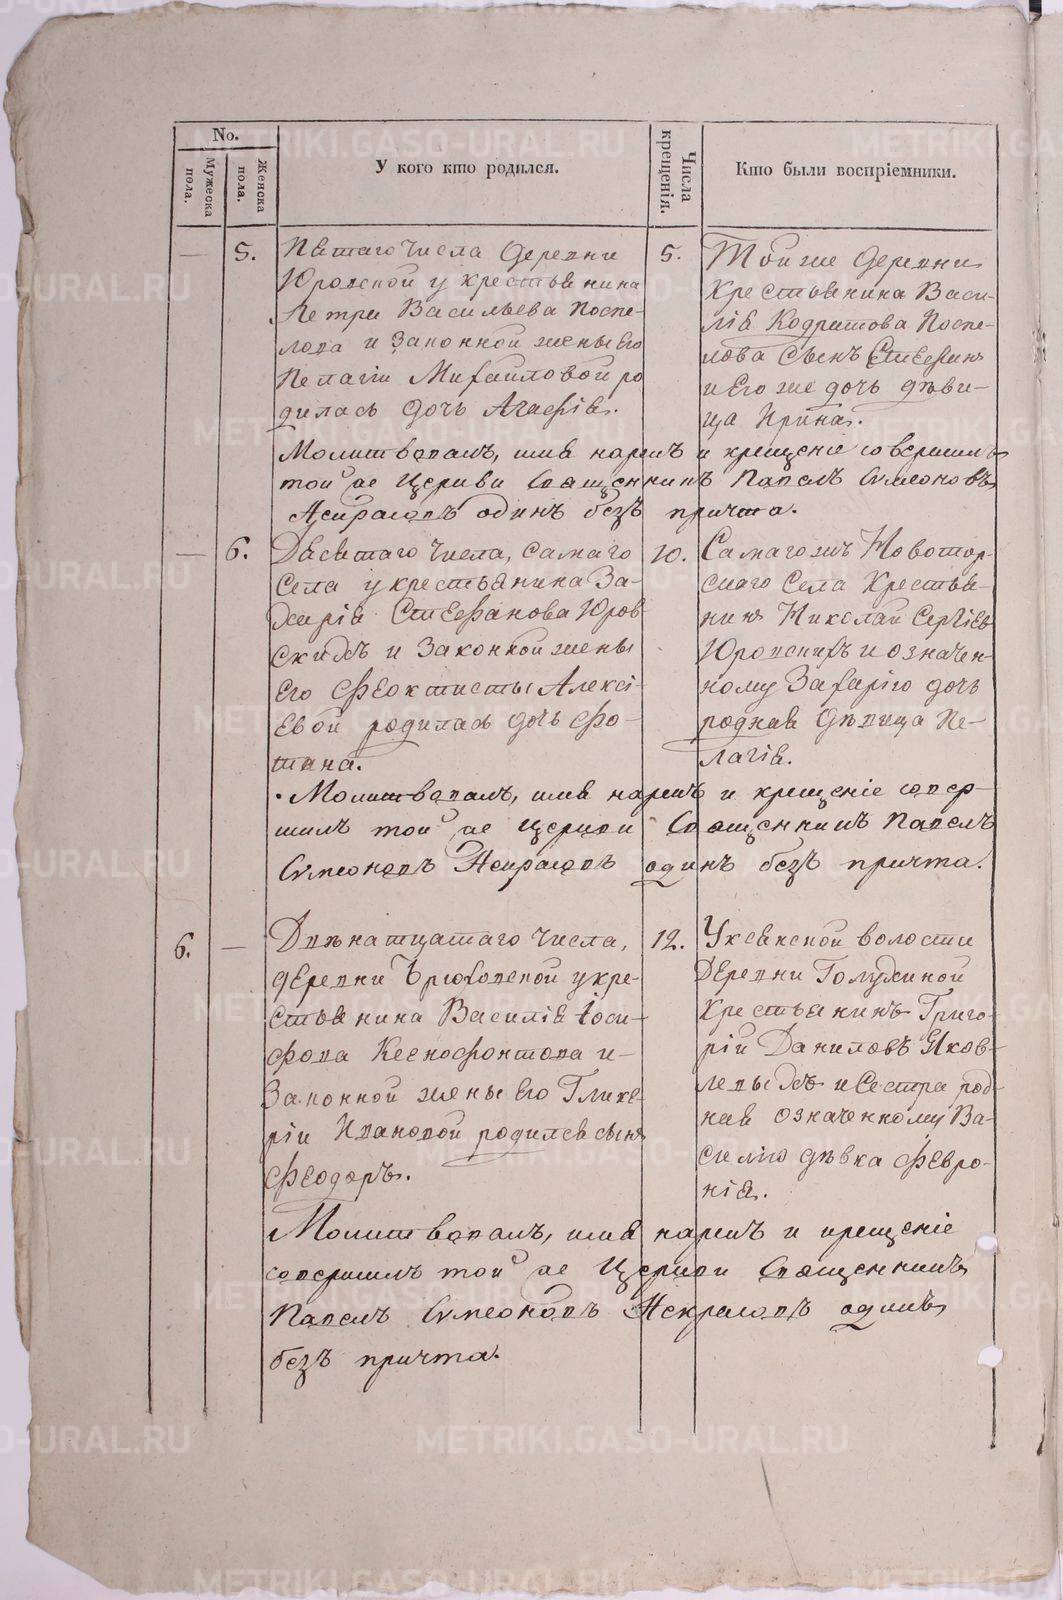 No.
Мужеска пола.
Женска пола.
У кого кто родился.
Числа крещенія.
Кто были воспріемники.
5.
Пятаго числа деревни
Юровской у крестьянина
Петра Васильева Поспе-
лова и Законной жены Его
Пелагіи Михайловой ро
дилась дочь Агафія.
5.
Той же деревни
Крестьянина Васи-
лія Кодратова Поспе-
лова сынъ Стефанъ
и Его же дочь дѣви-
ца Ирина.
Молитвовалъ, имя нарекъ и крещеніе совершилъ
той же Церкви Священникъ Павелъ Симеоновъ
Некрасовъ одинъ безъ причта.
6.
Десятаго числа, самаго
Села у крестьянина За-
харія Стефанова Юров
скихъ и Законной жены
Его Феоктисты Алексі-
Евой родилась дочь Фо-
тина.
10.
Самагожъ Новотор-
скаго Села Крестья-
нинъ Николай Сергіев
Юровскихъ и означен-
ному Захарію дочь
родная дѣвица Пе-
лагія.
Молитвовалъ, имя нарекъ и крещеніе совер-
шилъ той же Церкви Священникъ Павелъ
Симеоновъ Некрасовъ одинъ безъ причта.
6.
Двѣнатцатаго числа,
деревни Брюховской у кре-
стьянина Василія Іоси-
фова Ксенофонтова и
Законной жены Его Глике-
ріи Ивановой родился сынъ
Феодоръ.
12.
Уксянской волости
Деревни Голухиной
Крестьянинъ Григо-
рій Даниловъ Яков-
левыхъ и Сестра род-
ная означенному Ва-
силію дѣвка Февро-
нія.
Молитвовалъ, имя нарекъ и крещеніе
совершилъ той же Церкви Священникъ
Павелъ Симеоновъ Некрасовъ одинъ
безъ причта.
METRIKI.GASO-URAL.RU